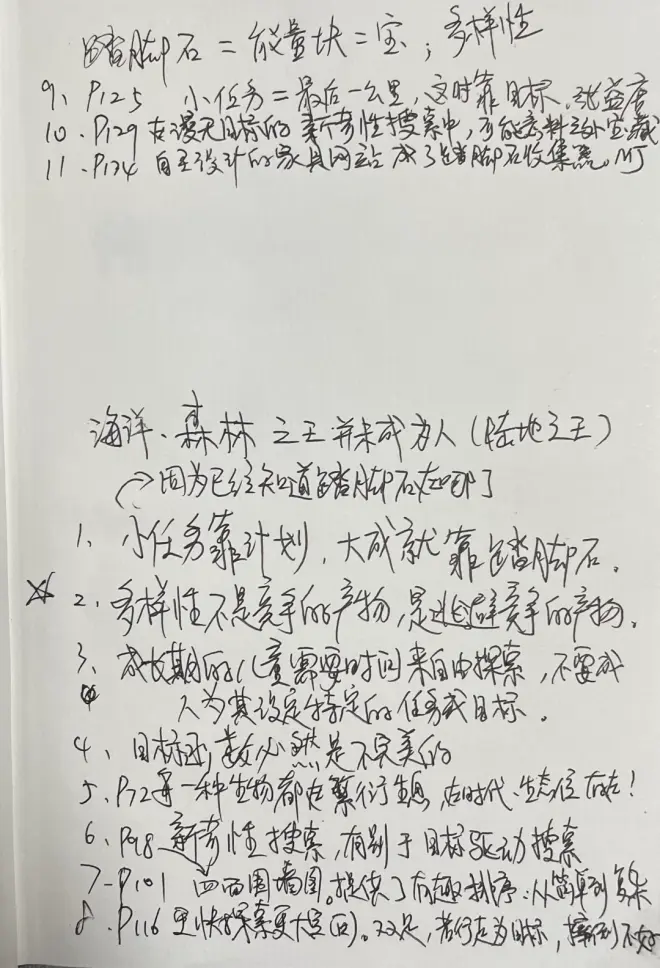 踏脚石=能量块=宝;多样性
9、P125 小任务=最后一公里,这时靠目标.张益唐
10.P129 在漫无目标的新奇性搜索中,可能意料之外宝藏
11.P134 自主设计的家具网站成了踏脚石收集器.MJ
海洋.森林之王并未成为人(陆地之王)
因为已经知道踏脚石在哪了
1、小任务靠计划,大成就靠踏脚石.
☆2、多样性不是竞争的产物,是逃避竞争的产物.
3、成长期的儿童需要时间来自由探索,不要成
人为其设定特定的任务或目标.
4、目标函数必然是不完美的
5、P72每一种生物都在繁衍生息,在时代.生态位存在!
6、P98 新奇性搜索,有别于目标驱动搜索
7-P101 四面围墙图.提供了有趣排序:从简单到复杂
8.P116 更快探索更大空间.双足,若行走为目标,